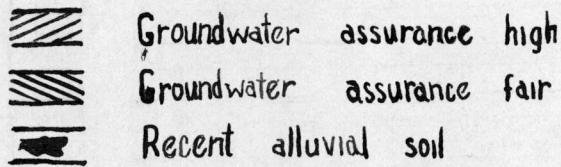 Groundwater assurance high
Groundwater assurance fair
Recent alluvial soil